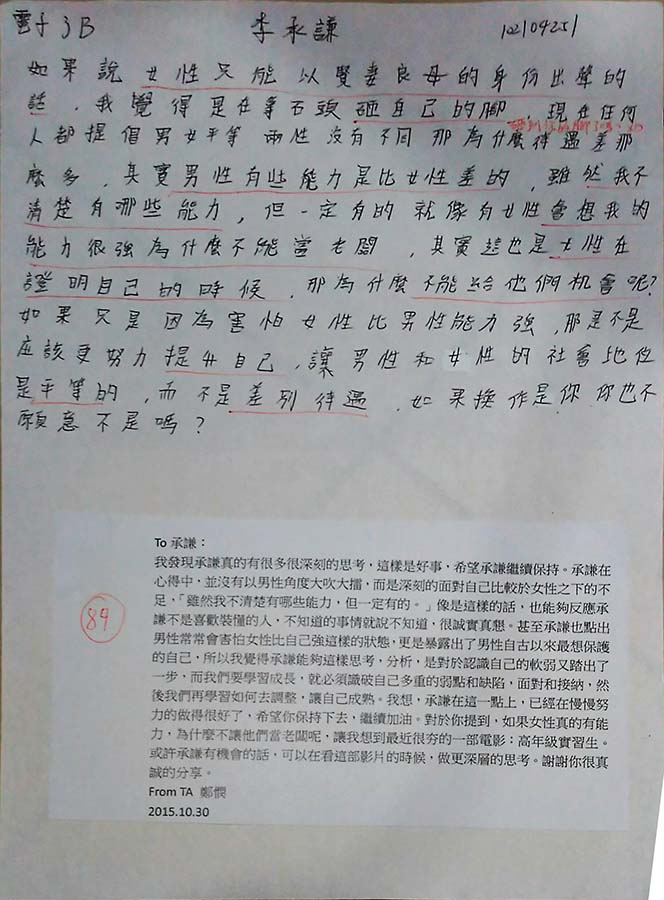 電子3B 李承謙 102104251
如果說女性只能以賢妻良母的身份出聲的
話,我覺得是在拿石頭砸自己的腳,現在任何
人都提倡男女平等 兩性沒有不同 那為什麼待遇差那
麼多,其實男性有些能力是比女性差的,雖然我不
清楚有哪些能力,但一定有的 就像有女性會想我的
能力很強為什麼不能當老闆,其實這也是女性在
證明自己的時候,那為什麼不能給他們機會呢?
如果只是因為害怕女性比男性能力強,那是不是
應該更努力提升自己,讓男性和女性的社會地位
是平等的,而不是差別待遇,如果換作是你 你也不
願意不是嗎?
84
To 承謙:
我發現承謙真的有很多很深刻的思考,這樣是好事,希望承謙繼續保持。承謙在
心得中,並沒有以男性角度大吹大擂,而是深刻的面對自己比較於女性之下的不
足,「雖然我不清楚有哪些能力,但一定有的。」像是這樣的話,也能夠反應承
謙不是喜歡裝懂的人,不知道的事情就說不知道,很誠實真懇。甚至承謙也點出
男性常常會害怕女性比自己強這樣的狀態,更是暴露出了男性自古以來最想保護
的自己,所以我覺得承謙能夠這樣思考,分析,是對於認識自己的軟弱又踏出了
一步,而我們要學習成長,就必須識破自己多重的弱點和缺陷,面對和接納,然
後我們再學習如何去調整,讓自己成熟。我想,承謙在這一點上,已經在慢慢努
力的做得很好了,希望你保持下去,繼續加油。對於你提到,如果女性真的有能
力,為什麼不讓他們當老闆呢,讓我想到最近很夯的一部電影:高年級實習生。
或許承謙有機會的話,可以在看這部影片的時候,做更深層的思考。謝謝你很真
誠的分享。
From TA 鄭憫
2015.10.30